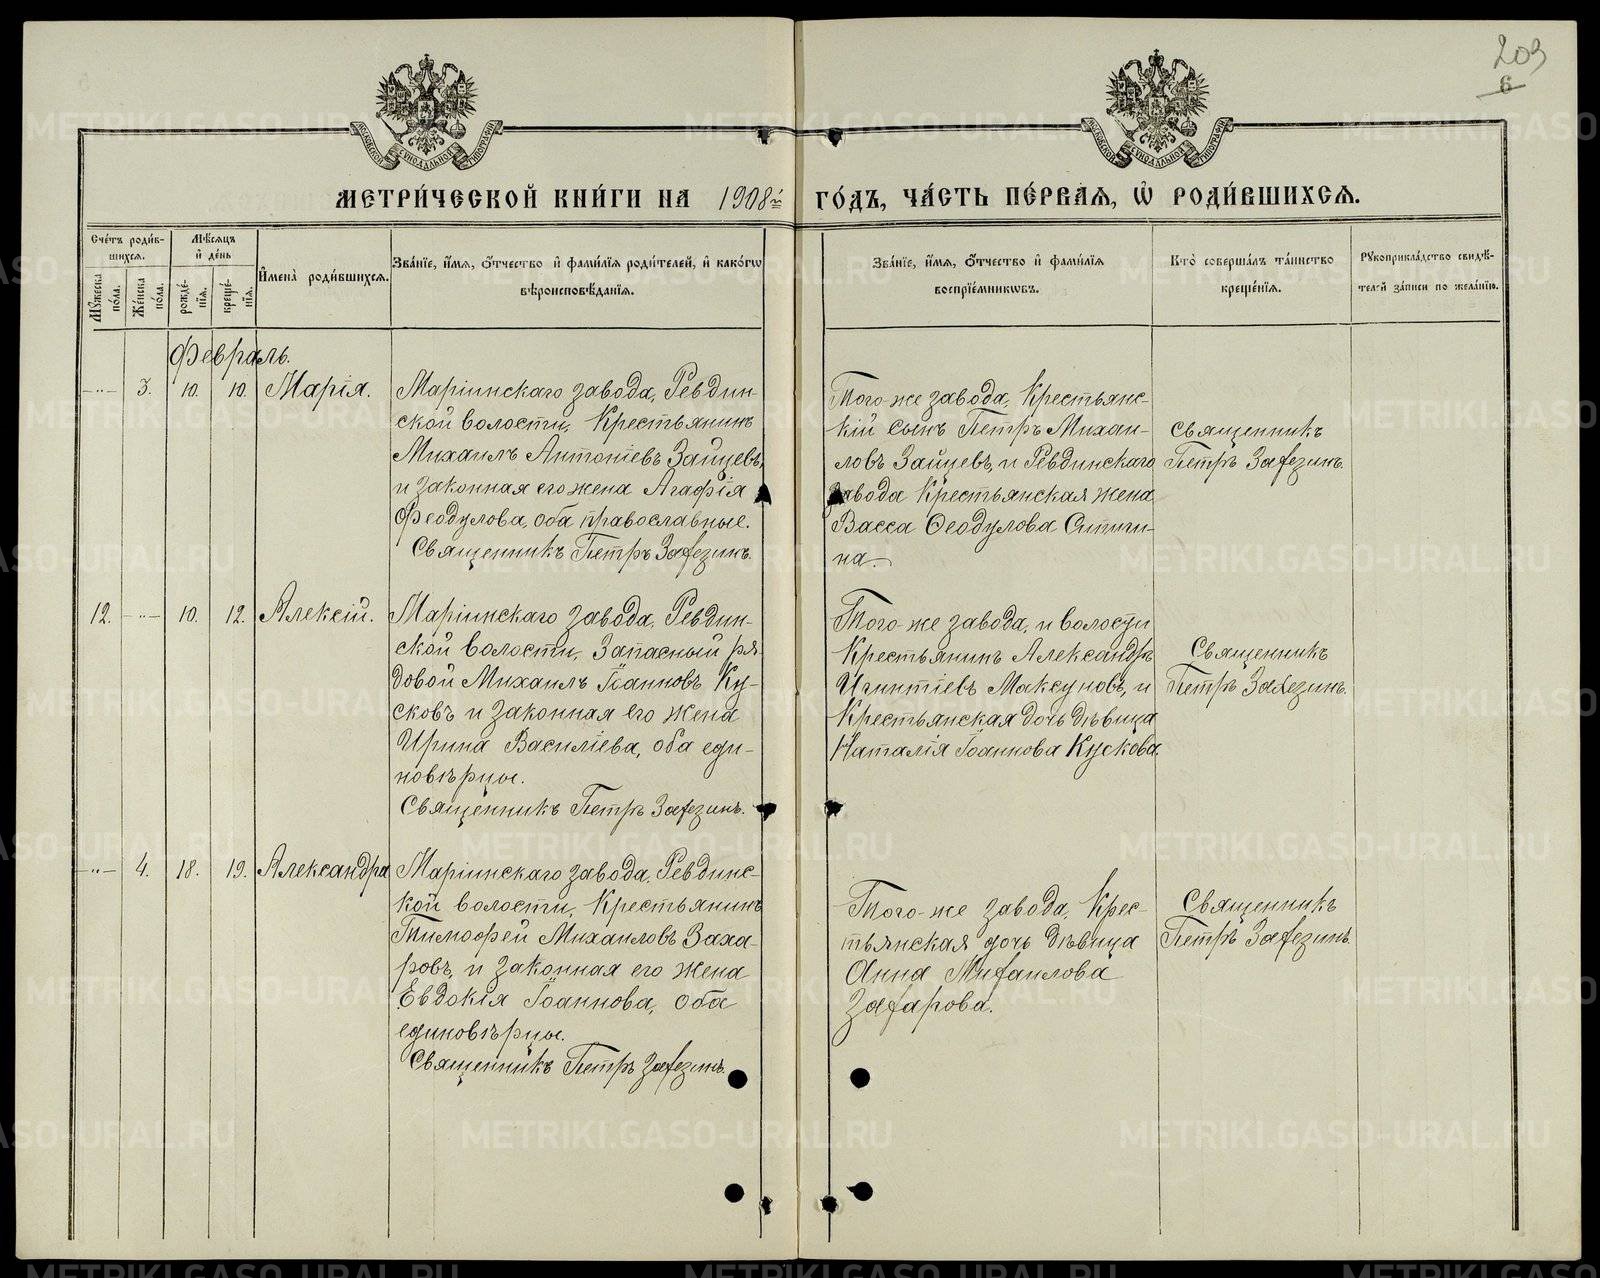 203
6
МОСКОВСКОЙ СѴНОДАЛЬНОЙ ТИПОГРАФІИ
МОСКОВСКОЙ СѴНОДАЛЬНОЙ ТИПОГРАФІИ
МЕТРИ́ЧЕСКОЙ КНИ́ГИ НА 1908й ГО́ДЪ, ЧА́СТЬ ПЕ́РВАѦ, Ѡ҆ РОДИ́ВШИХСѦ.
Сче́тъ роди́в-
шихсѧ.
Мꙋ́жеска по́ла.
Же́нска по́ла.
Мѣ́сѧцъ
и҆ де́нь
рожде́-
нїѧ.
креще́-
нїѧ.
И҆мена̀ роди́вшихсѧ.
Зва́нїе, и҆́мѧ, ѻ҆́тчество и҆ фами́лїѧ роди́телей, и҆ како́гѡ
вѣроисповѣ́данїѧ.
Зва́нїе, и҆́мѧ, ѻ҆́тчество и҆ фами́лїѧ
воспрїе́мникѡвъ.
Кто̀ соверша́лъ та́инство
креще́нїѧ.
Рꙋкоприкла́дство свидѣ́-
тел-й за́писи по жела́нїю.
Февраль.
-"- 3. 10. 10. Марія.
Маріинскаго завода, Ревдин-
ской волости, Крестьянинъ
Михаилъ Антоніевъ Зайцевъ,
и законная его жена Агафія
Феодулова, оба православные.
Священникъ Петръ Захезинъ.
Того-же завода, Крестьянс-
кій сынъ Петръ Михаи-
ловъ Зайцевъ, и Ревдинскаго
завода Крестьянская жена
Васса Ѳеодулова Ситни-
на.
Священникъ
Петръ Захезинъ.
12. -"- 10. 12. Алексій.
Маріинскаго завода, Ревдин-
ской волости, Запасный ря-
довой Михаилъ Іоанновъ Ку-
сковъ и законная его жена
Ирина Василіева, оба еди-
новѣрцы.
Священникъ Петръ Захезинъ.
Того-же завода, и волости
Крестьянинъ Александръ
Игнатіевъ Максуновъ, и
Крестьянская дочь дѣвица
Наталія Іоаннова Кускова.
Священникъ
Петръ Захезинъ.
-"- 4. 18. 19. Александра
Маріинскаго завода, Ревдинс-
кой волости, Крестьянинъ
Тимофей Михаиловъ Заха-
ровъ, и законная его жена
Евдокія Іоаннова, оба
единовѣрцы.
Священникъ Петръ Захезинъ.
Того-же завода, Крес-
тьянская дочь дѣвица
Анна Михаилова
Захарова.
Священникъ
Петръ Захезинъ.
METRIKI.GASO-URAL.RU